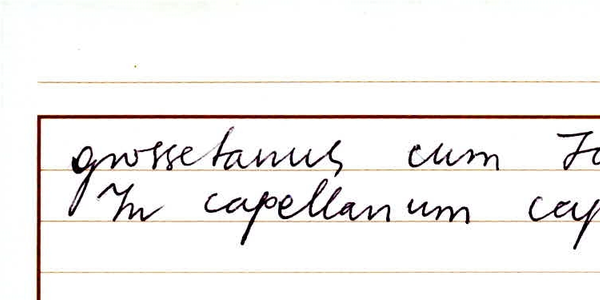 grossetanus cum
In capellanum cap